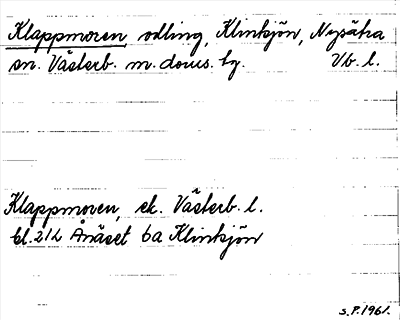 Klappmoren odling, Klintsjön, Nysätra
sn. Västerb. m. doms. bg. Vb. l.
Klappmoren, ek. Västerb. l.
bl. 212 Ånäset 6a Klintsjön
S.P. 1961.